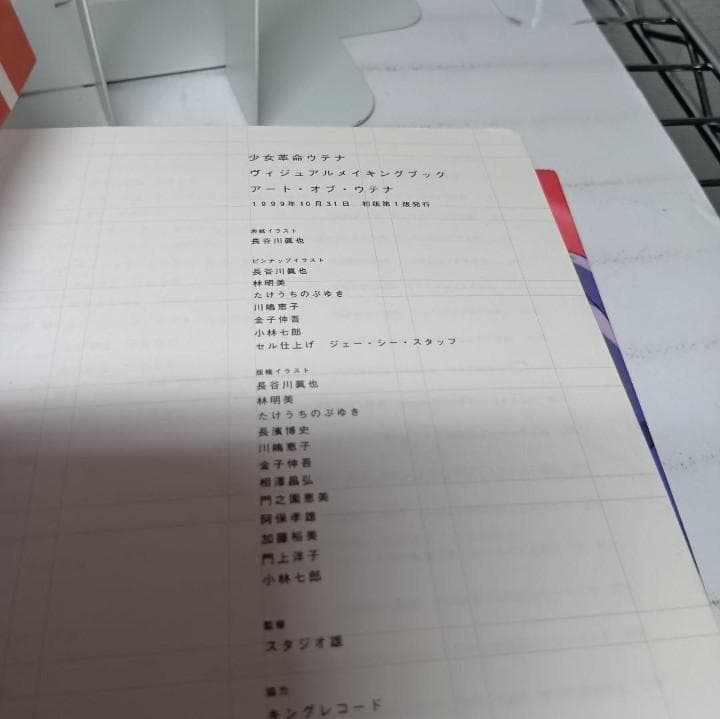 少女革命ウテナ
ヴィジュアルメイキングブック
アート・オブ・ウテナ
1999年10月31日　初版第1版発行
表紙イラスト
長谷川眞也
ピンナップイラスト
長谷川眞也
林明美
たけうちのぶゆき
川嶋恵子
金子伸吾
小林七郎
セル仕上げ　ジェー・シー・スタッフ
版権イラスト
長谷川眞也
林明美
たけうちのぶゆき
長濱博史
川嶋恵子
金子伸吾
相澤昌弘
門之園恵美
阿保孝雄
加藤裕美
門上洋子
小林七郎
監修
スタジオ雄
協力
キングレコード